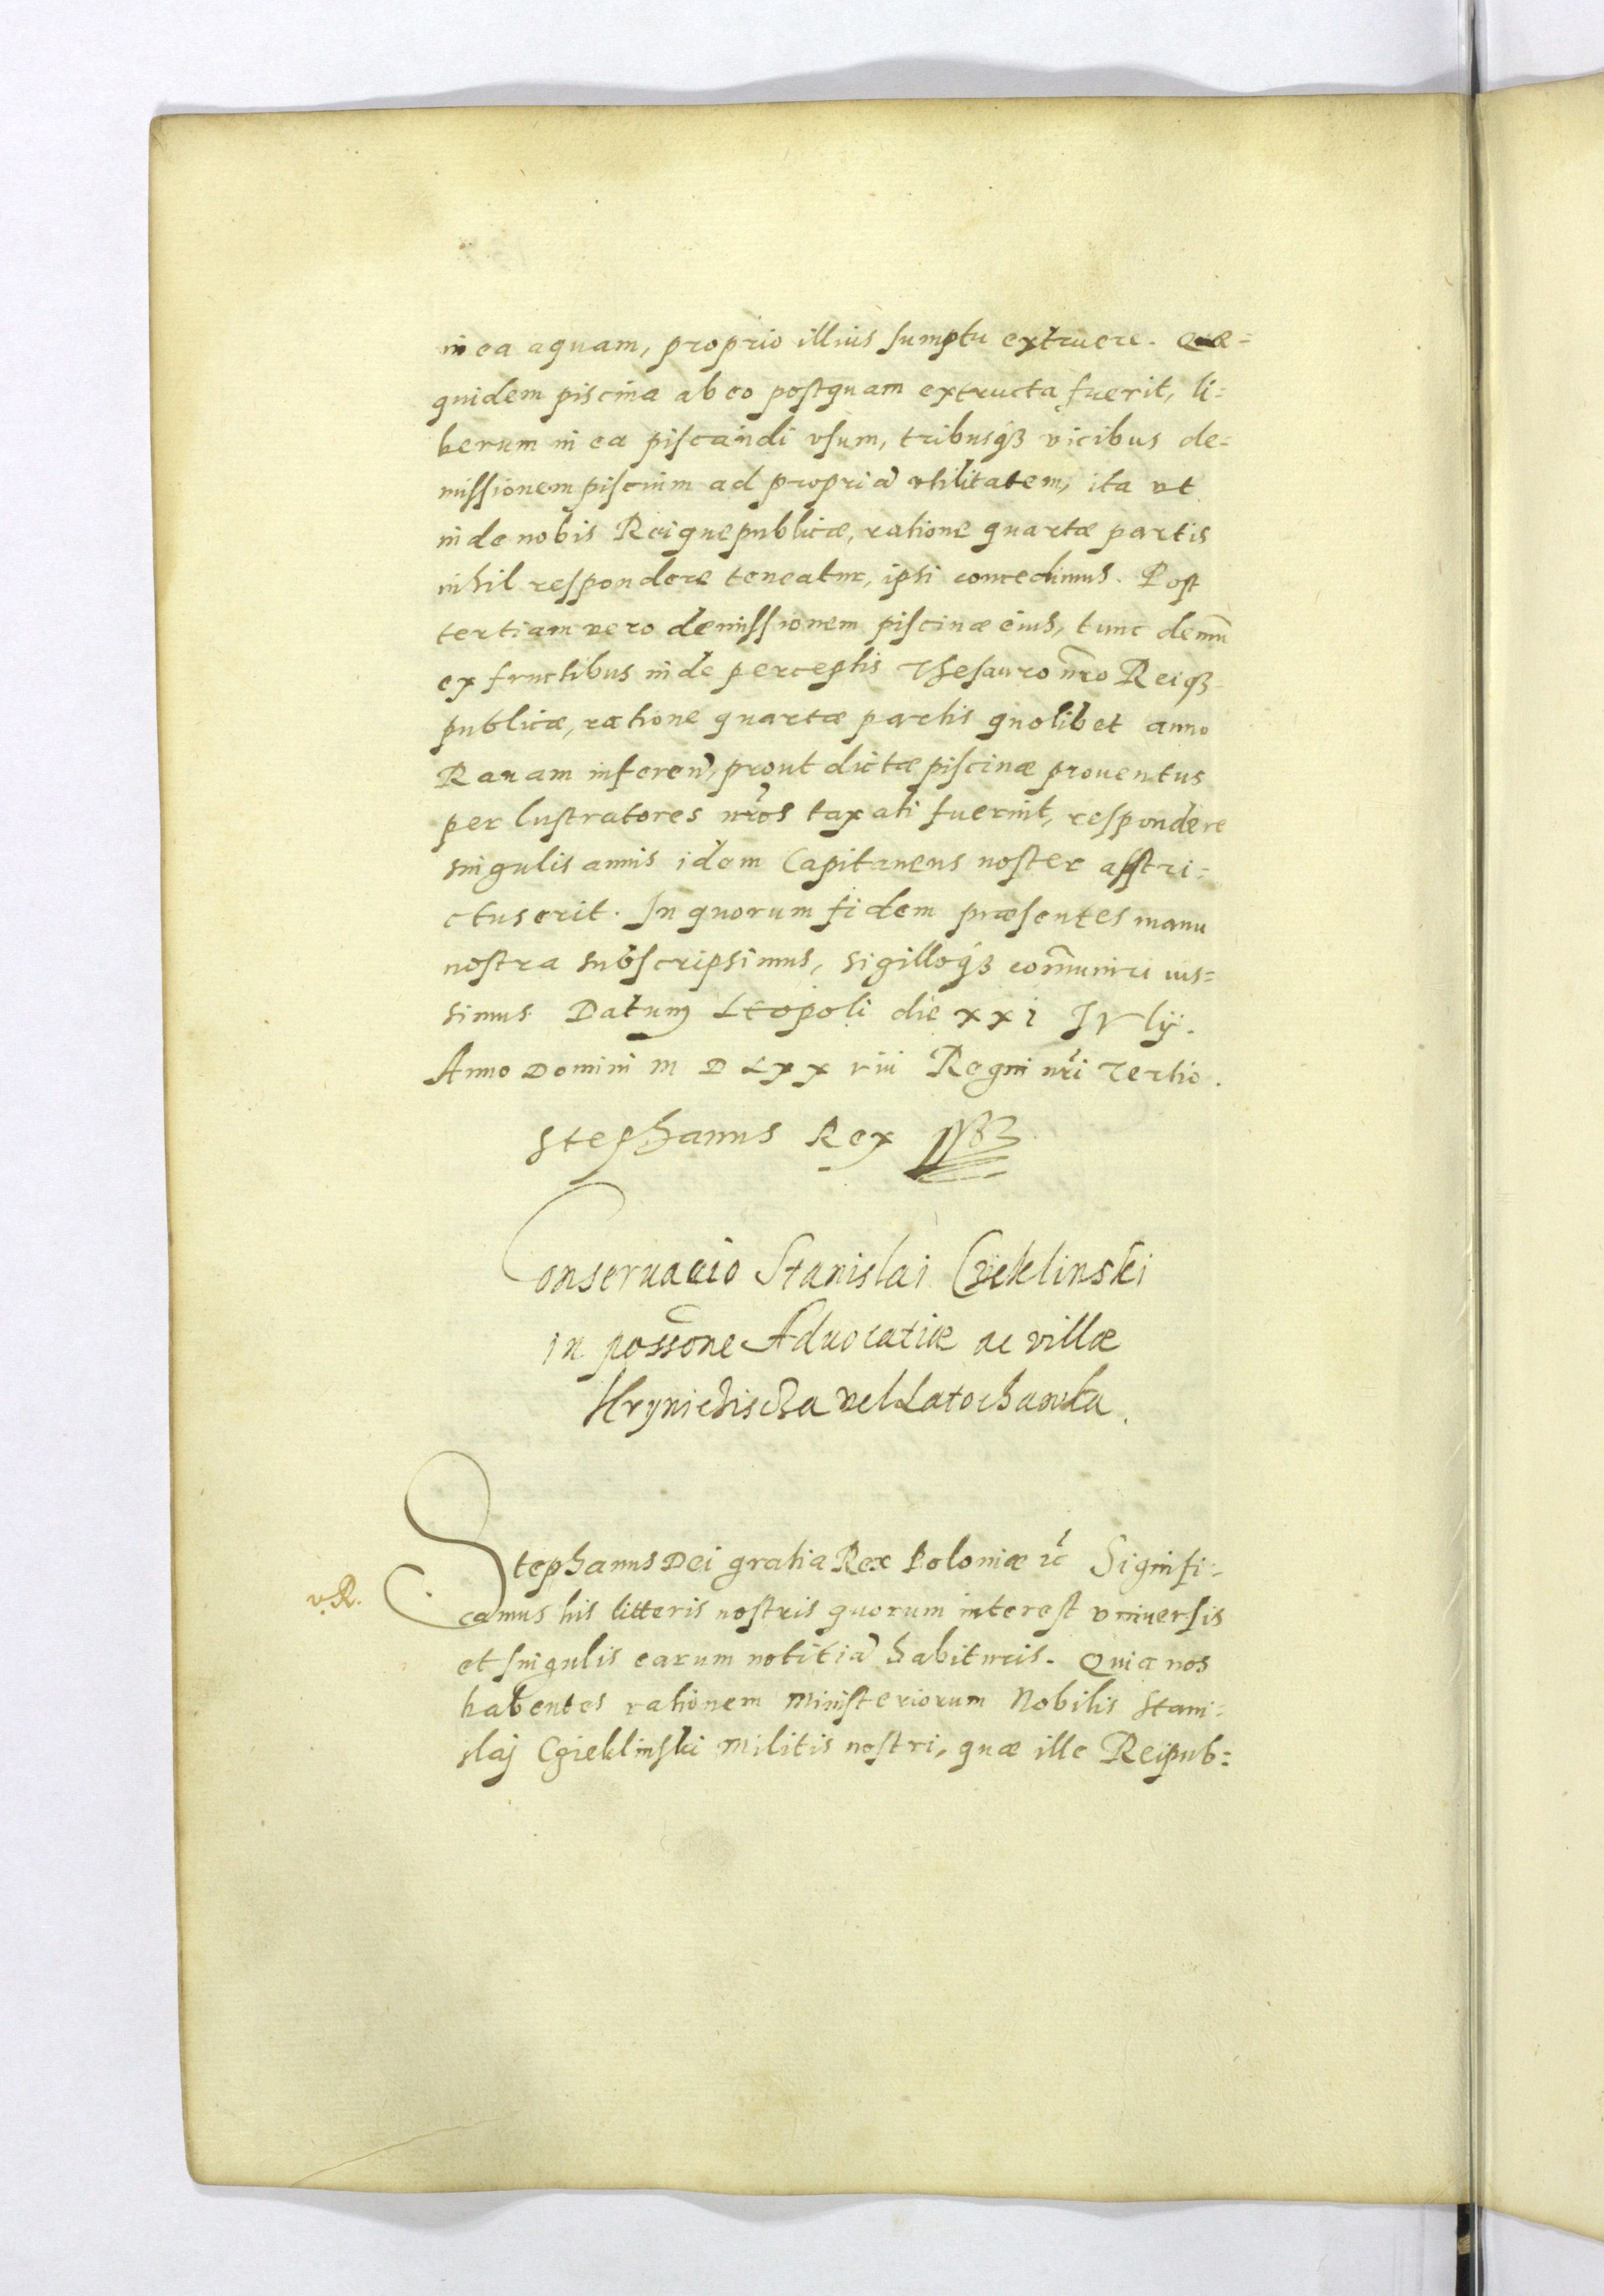 in ea aquam, proprio illius sumptu extruere. Quæ=
quidem piscina ab eo postquam extructa fuerit, li=
berum in ea piscandi vsum, tribusqȝ vicibus de=
missionem piscium ad propriã vtilitatem, ita vt
inde nobis Reiquepublicæ, ratione quartæ partis
nihil respondere teneatur, ipsi concedimus. Post
tertiam vero demissionem piscinæ eius, tunc demũ
ex fructibus inde perceptis Thesauro nr̃o Reiqȝ
publicæ, ratione quartæ partis quolibet anno
Rauam inferen̄, prout dictæ piscinæ prouentus
per lustratores nr̃os taxati fuerint, respondere
singulis annis idem Capitaneus noster asstri=
ctus erit. In quorum fidem præsentes manu
nostra subscripsimus, sigilloqȝ com̃uniri ius=
simus Datum Leopoli die xxi IVlij.
Anno Domini M D Lxx viii Regni nr̃i Tertio.
Stephanus Rex
Conseruacio Stanislai Czieklinski
in possone Aduocatiæ ac villæ
Hrynichischa vel Latochawka.
Stephanus Dei gratia Rex Poloniæ ꝛc̃ Signifi=
v. R.
camus his litteris nostris quorum interest vniuersis
et singulis earum notitiã habituris. Quia nos
habentes rationem Ministeriorum Nobilis Stani=
slaj Czieklinski Militis nostri, quæ ille Reipub=